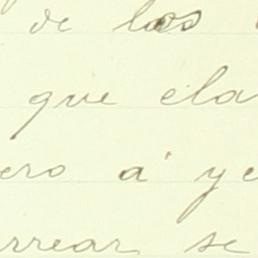 de los
que ela
ero á ye
rrear se